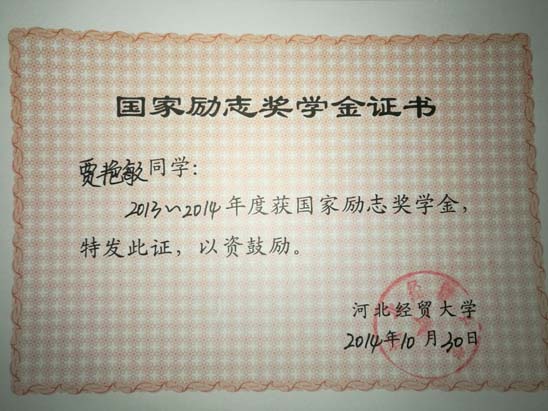 国家励志奖学金证书
贾艳敏同学：
2013~2014年度获国家励志奖学金，
特发此证，以资鼓励。
河北经贸大学
2014年10月30日